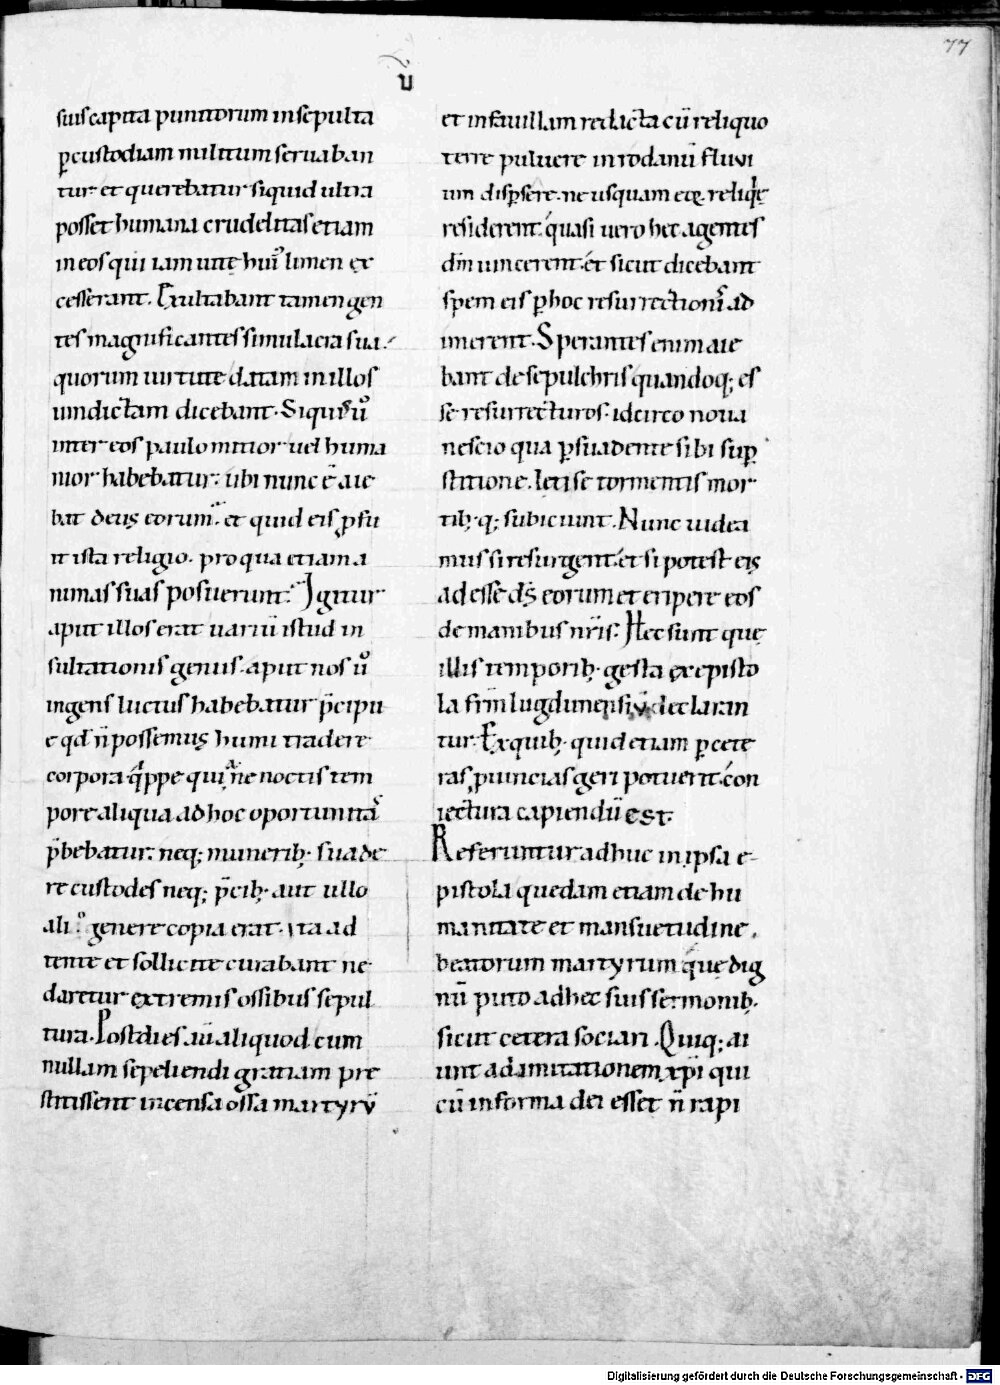 77
ū
suis capita punitorum insepulta
ꝑ custodiam militum seruaban
tur et querebatur siquid ultra
posset humana crudelitas etiam
in eos qui iam uitę huiꝰ limen ex
cesserant. Exultabant tamen gen
tes magnificantes simulacra sua.
quorum uirtute datam in illos
uindictam dicebant. Siquis ū
inter eos paulo mitior uel huma
nior habebatur. ubi nunc ē aie
bat deus eorum. et quid eis ꝓfu
it ista religio. pro qua etiam a
nimas suas posuerunt. Igitur
aput illos erat uariū istud in
sultationis genus. aput nos ū
ingens luctus habebatur p̄cipu
e qd n̄ possemus humi tradere
corpora qͥppe qui ne noctis tem
pore aliqua ad hoc oportunitaˢ
p̄bebatur. neq; munerib; suade
re custodes neq; p̄cib; aut ullo
aliͦ genere copia erat. ita ad
tente et sollicite curabant ne
daretur extremis ossibus sepul
tura. Post dies aū aliquod cum
nullam sepeliendi gratiam pre
stitissent incensa ossa martyrū
et in fauillam redacta cū reliquo
terre puluere in rodanū fluui
um disꝑsere. ne usquam eoꝝ reliqͥę
residerent. quasi uero hec agentes
dm̄ uincerent. et sicut dicebant
spem eis ꝑ hoc resurrectionis ad
imerent. Sperantes enim aie
bant de sepulchris quandoq; es
se resurrecturos. idcirco noua
nescio qua ꝑsuadente sibi suꝑ
stitione. leti se tormentis mor
tib; q; subiciunt. Nunc uidea
mus si resurgent. et si potest eis
adesse ds̄ eorum et eripere eos
de manibus nr̄is. Hec sunt que
illis temporib; gesta ex episto
la frm̄ lugdunensiū declaran
tur. Ex quib; quid etiam ꝑ cete
ras ꝓuincias geri potuerit. con
iectura capiendū est.
Referuntur adhuc in ipsa e-
pistola quedam etiam de hu
manitate et mansuetudine.
beatorum martyrum que dig
nū puto adhec suis sermonib;
sicut cetera sociari. Quiq; ai
unt ad imitationem xp̄i qui
cū in forma dei esset n̄ rapi
Digitalisierung gefördert durch die Deutsche Forschungsgemeinschaft - DFG